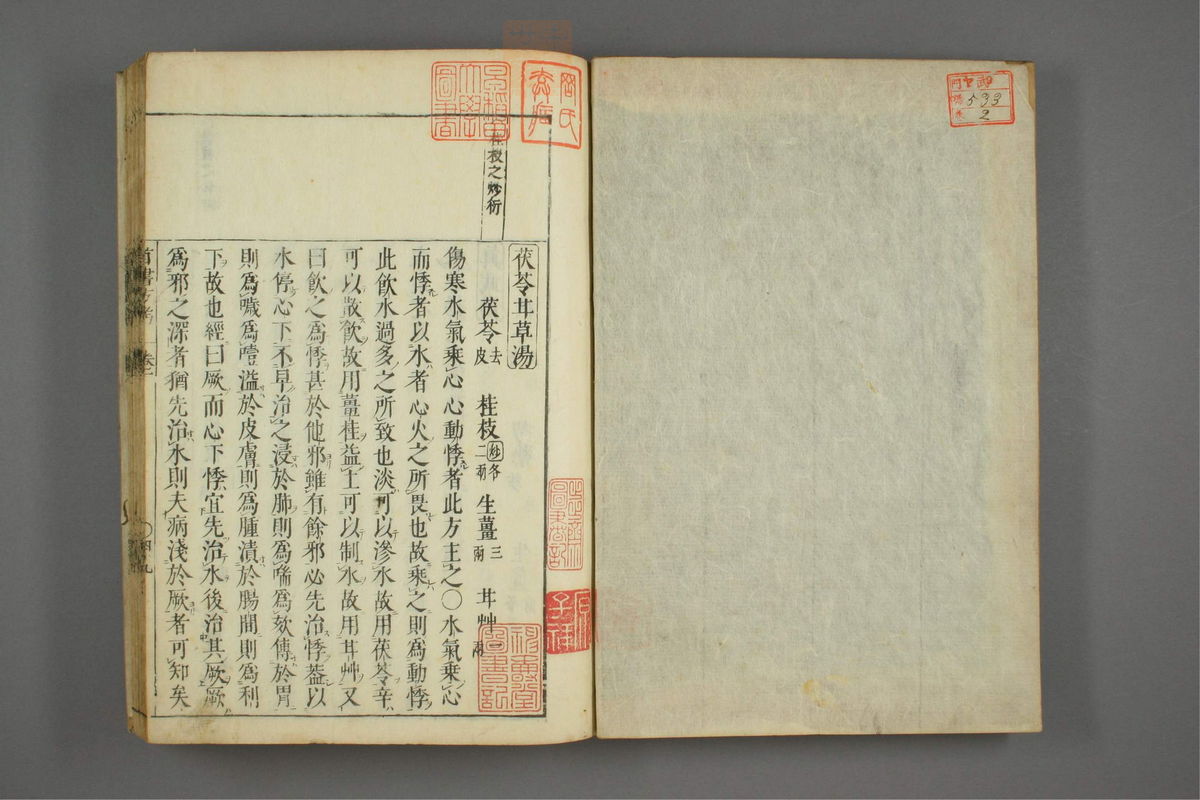 533
2
早稻田大學圖書
桂枝之妙衍
茯苓甘草湯
茯苓去皮 桂枝炒各二兩 生薑三兩 甘艸一兩
傷寒水氣乘心心動悸者此方主之○水氣乘心
而悸者以水者心火之所畏也故乘之則爲動悸
此飲水過多之所致也淡可以滲水故用茯苓辛
可以散飲故用薑桂益土可以制水故用甘艸又
曰飲之爲悸甚於他邪雖有餘邪必先治悸葢以
水停心下不早治之浸於肺則爲喘爲欬傳於胃
則爲噦爲噎溢於皮膚則爲腫漬於腸間則爲利
下故也經曰厥而心下悸宜先治水後治其厥厥
爲邪之深者猶先治水則夫病淺於厥者可知矣